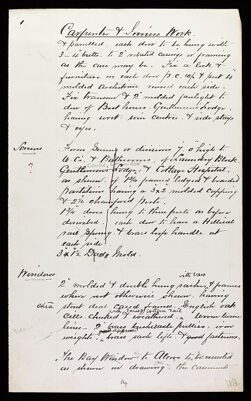 1
Carpenter & Joiners Work.
& panelled each door to be hung with
3 - 4" butts to 2" rebated casings or framing
as the case may be. Fix a lock &
furniture on each door p.c. & put to
molded architrave round each side.
Fix transom & 2" molded fanlight to
door of Boot house Gentlemens Lodge,
having iron centres & side stays
& eyes.
Screens
?
From Dining or divisions 7.0 high to
W.Cs & Bathrooms, of Laundry Block
Gentlemens Lodge, & Cottage Hospital,
as shewn of 1¾ framed ledged & boarded
partitions having a 3x2 molded capping
& 2¾ chamfered post.
1¾ doors hung to these posts as before
described each door to have a Helical
Spring & brass loop handle at
each side
3 x 1½ Dado Mold.
Windows
2" molded & double hung sashes & frames
where not otherwise shewn, having
stout deal cased frames, English oak
cills chinked & weathered,
lines - 2 brass pulleys, iron
weights, brass sash lift & good fasteners.
The Bay Window to Alcove to be executed
as shewn on drawing, the casements